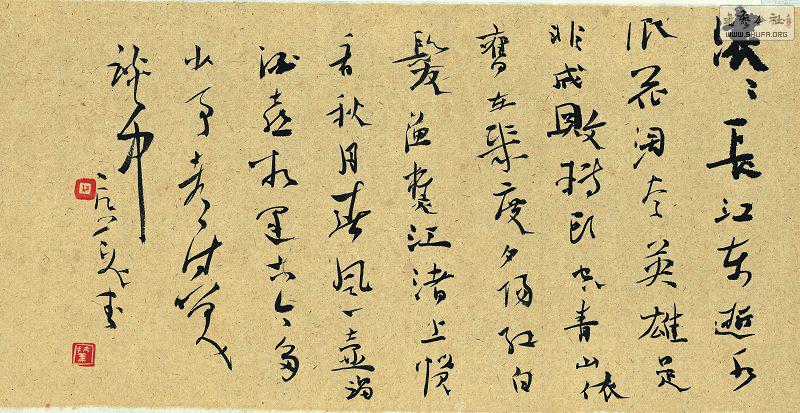 滚〻長江东逝水
浪花淘尽英雄是
非成敗转头空青山依
舊在幾度夕阳红白
髮渔樵江渚上惯
看秋月春風一壶濁
酒喜相逢古今多
少事都付笑
談中
WWW.SHUFA.ORG